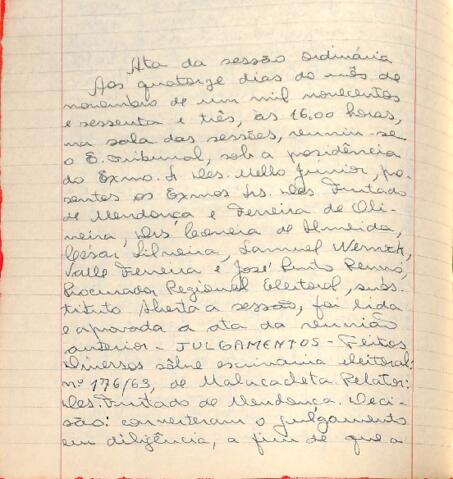 Ata da sessão ordinária
Aos quatorze dias do mês de
novembro de um mil novecentos
e sessenta e três, às 16.00 horas,
na sala das sessões, reuniu-se
o E. Tribunal, sob a presidência
do Exmo. Sr. Des. Mello Júnior, pre-
sentes os Exmos Srs. Des. Furtado
de Mendonça e Ferreira de Oli-
veira, Drs. Leonora de Almeida,
César Silveira, Samuel Werneck,
Valle Ferreira e José Pinto Renó,
Procurador Regional Eleitoral, subs-
tituto Aberta a sessão, foi lida
e aprovada a ata da reunião
anterior - JULGAMENTOS - Feitos
diversos sôbre escrivania eleitoral:
nº 176/63, de Malacacheta. Relator:
Des. Furtado de Mendonça. Deci-
são: converteram o julgamento
em diligência, a fim de que a